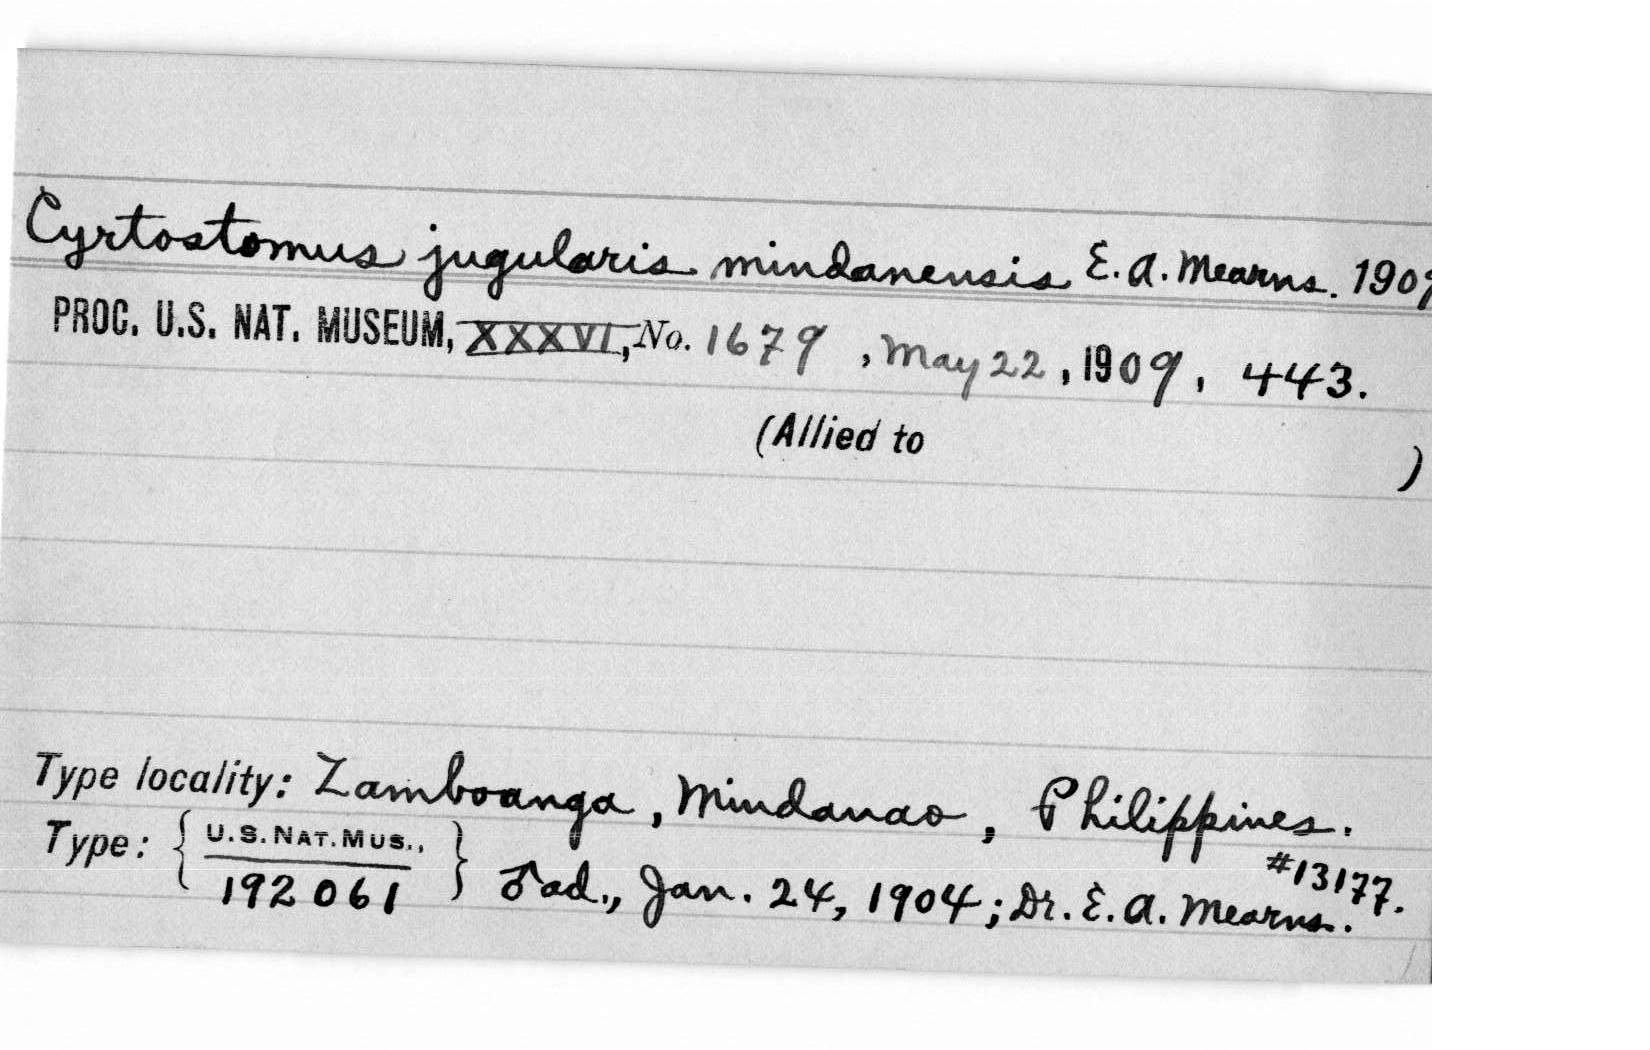 Cyrtostomus jugularis mindanensis E. A. Mearns. 1909
PROC. U.S. NAT. MUSEUM, XXXVI, No. 1679, May 22, 1909, 443.
(Allied to )
Type locality: Zamboanga, Mindanao, Philippines.
Type: { U.S. NAT. MUS., 192061 } ♂ ad., Jan. 24, 1904; Dr. E. A. Mearns. #13177.